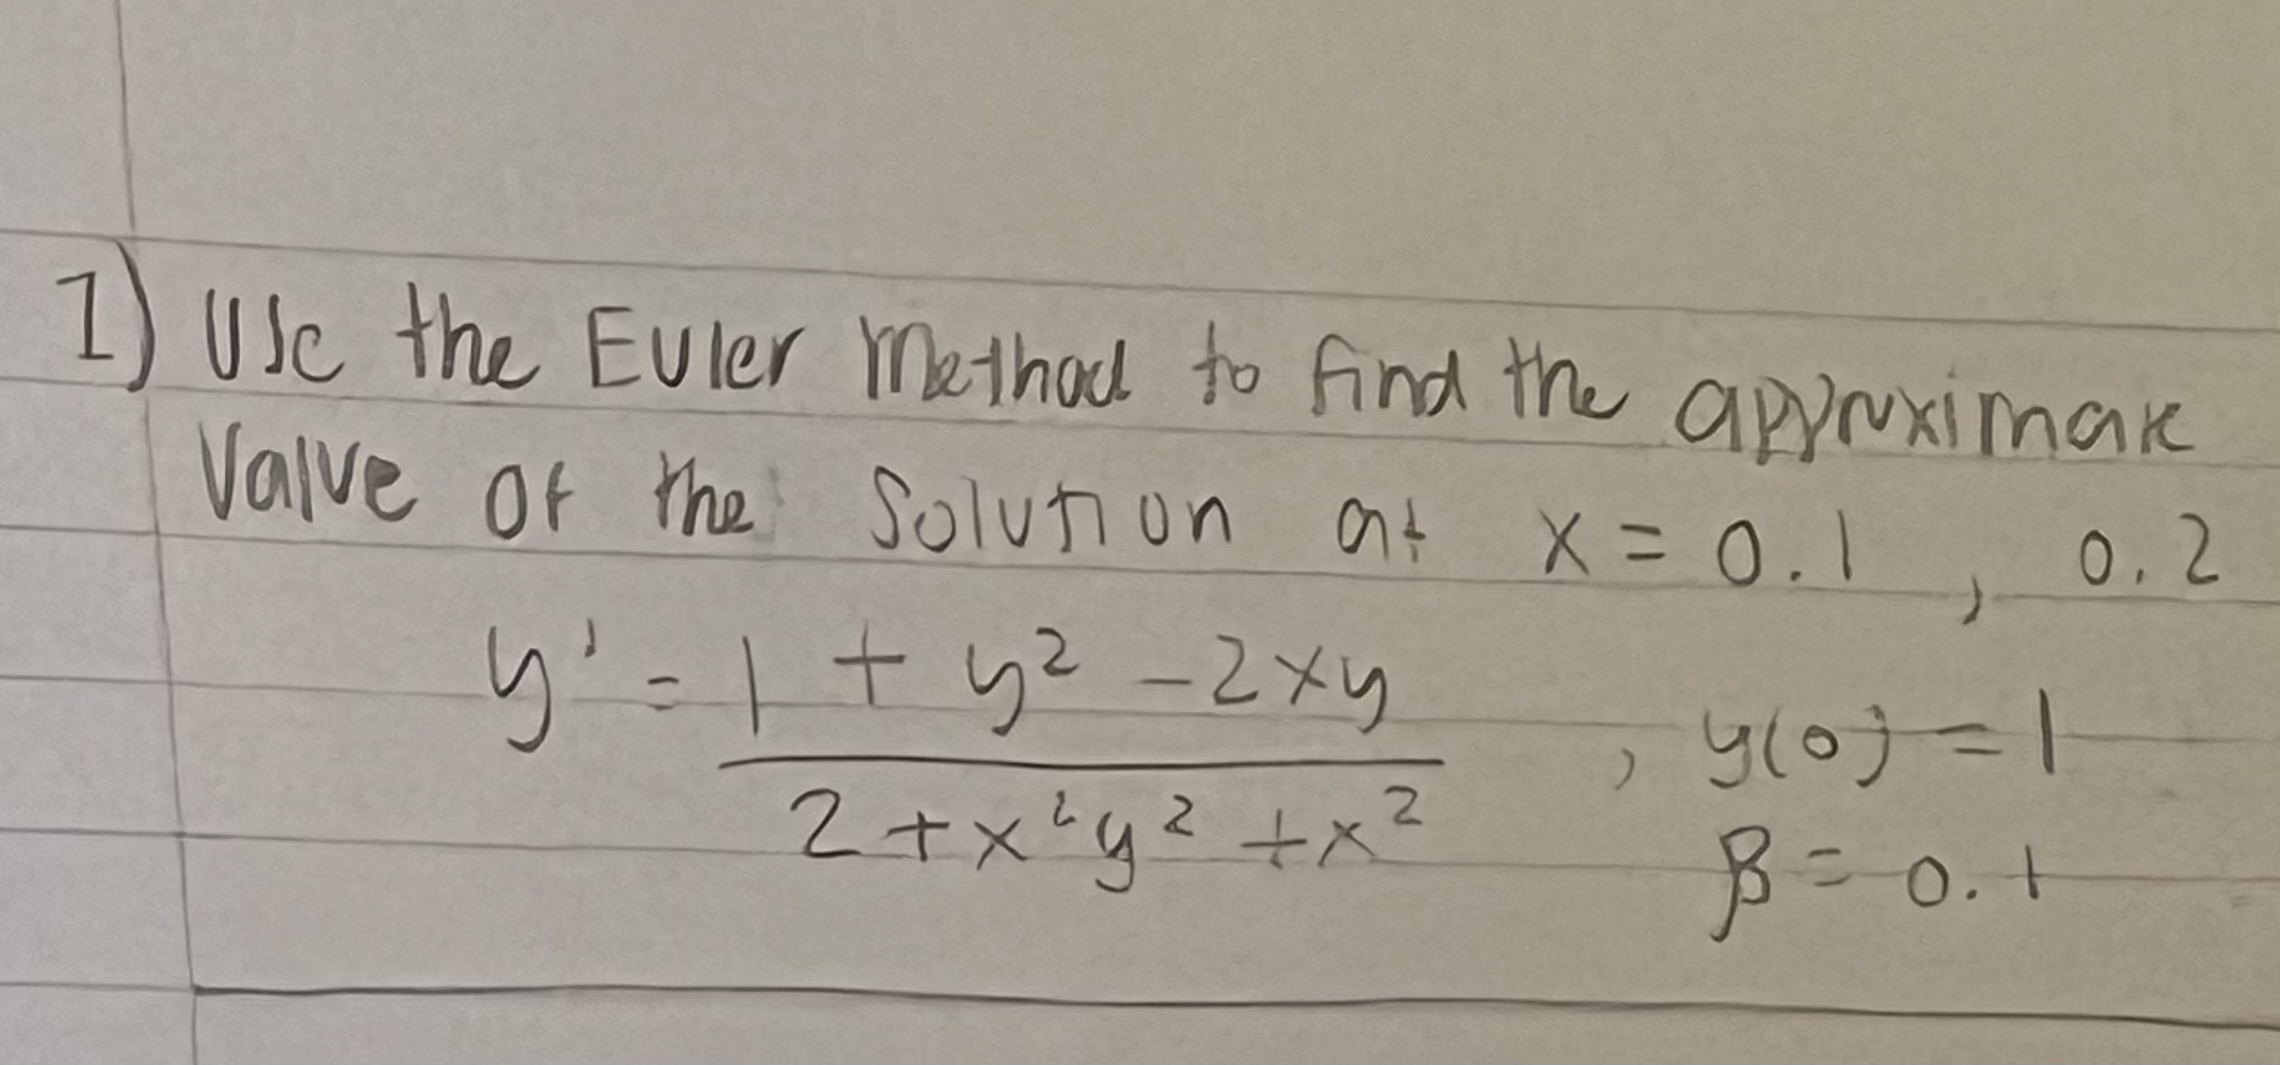 1) Use the Euler Method to find the approximate
Value of the Solution at x = 0.1 , 0.2
y' = 1 + y² - 2xy , y(0) = 1
2 + x²y² + x² β = 0.1